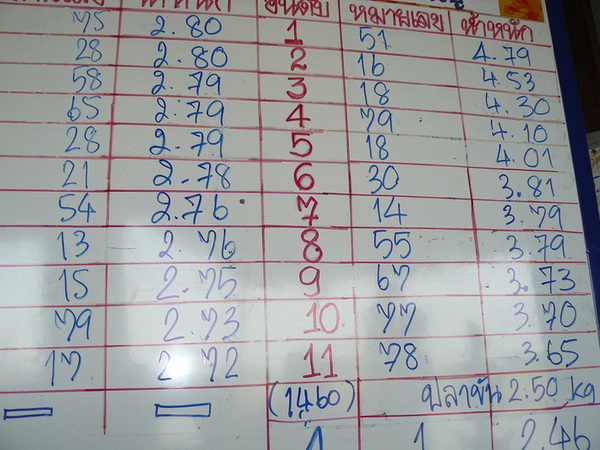 อันดับ หมายเลข น้ำหนัก
75 2.80 1 51 4.79
28 2.80 2 16 4.53
58 2.79 3 18 4.30
65 2.79 4 79 4.10
28 2.79 5 18 4.01
21 2.78 6 30 3.81
54 2.76 7 14 3.79
13 2.76 8 55 3.79
15 2.75 9 67 3.73
79 2.73 10 77 3.70
17 2.72 11 78 3.65
(1460) ปลาขัน 2.50 kg
1 1 2.46